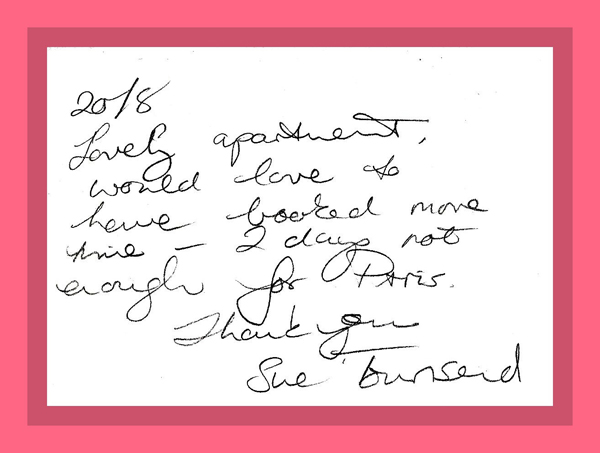 20/8
Lovely apartment,
would love to
have booked more
time – 2 days not
enough for Paris.
Thank you
Sue Townsend